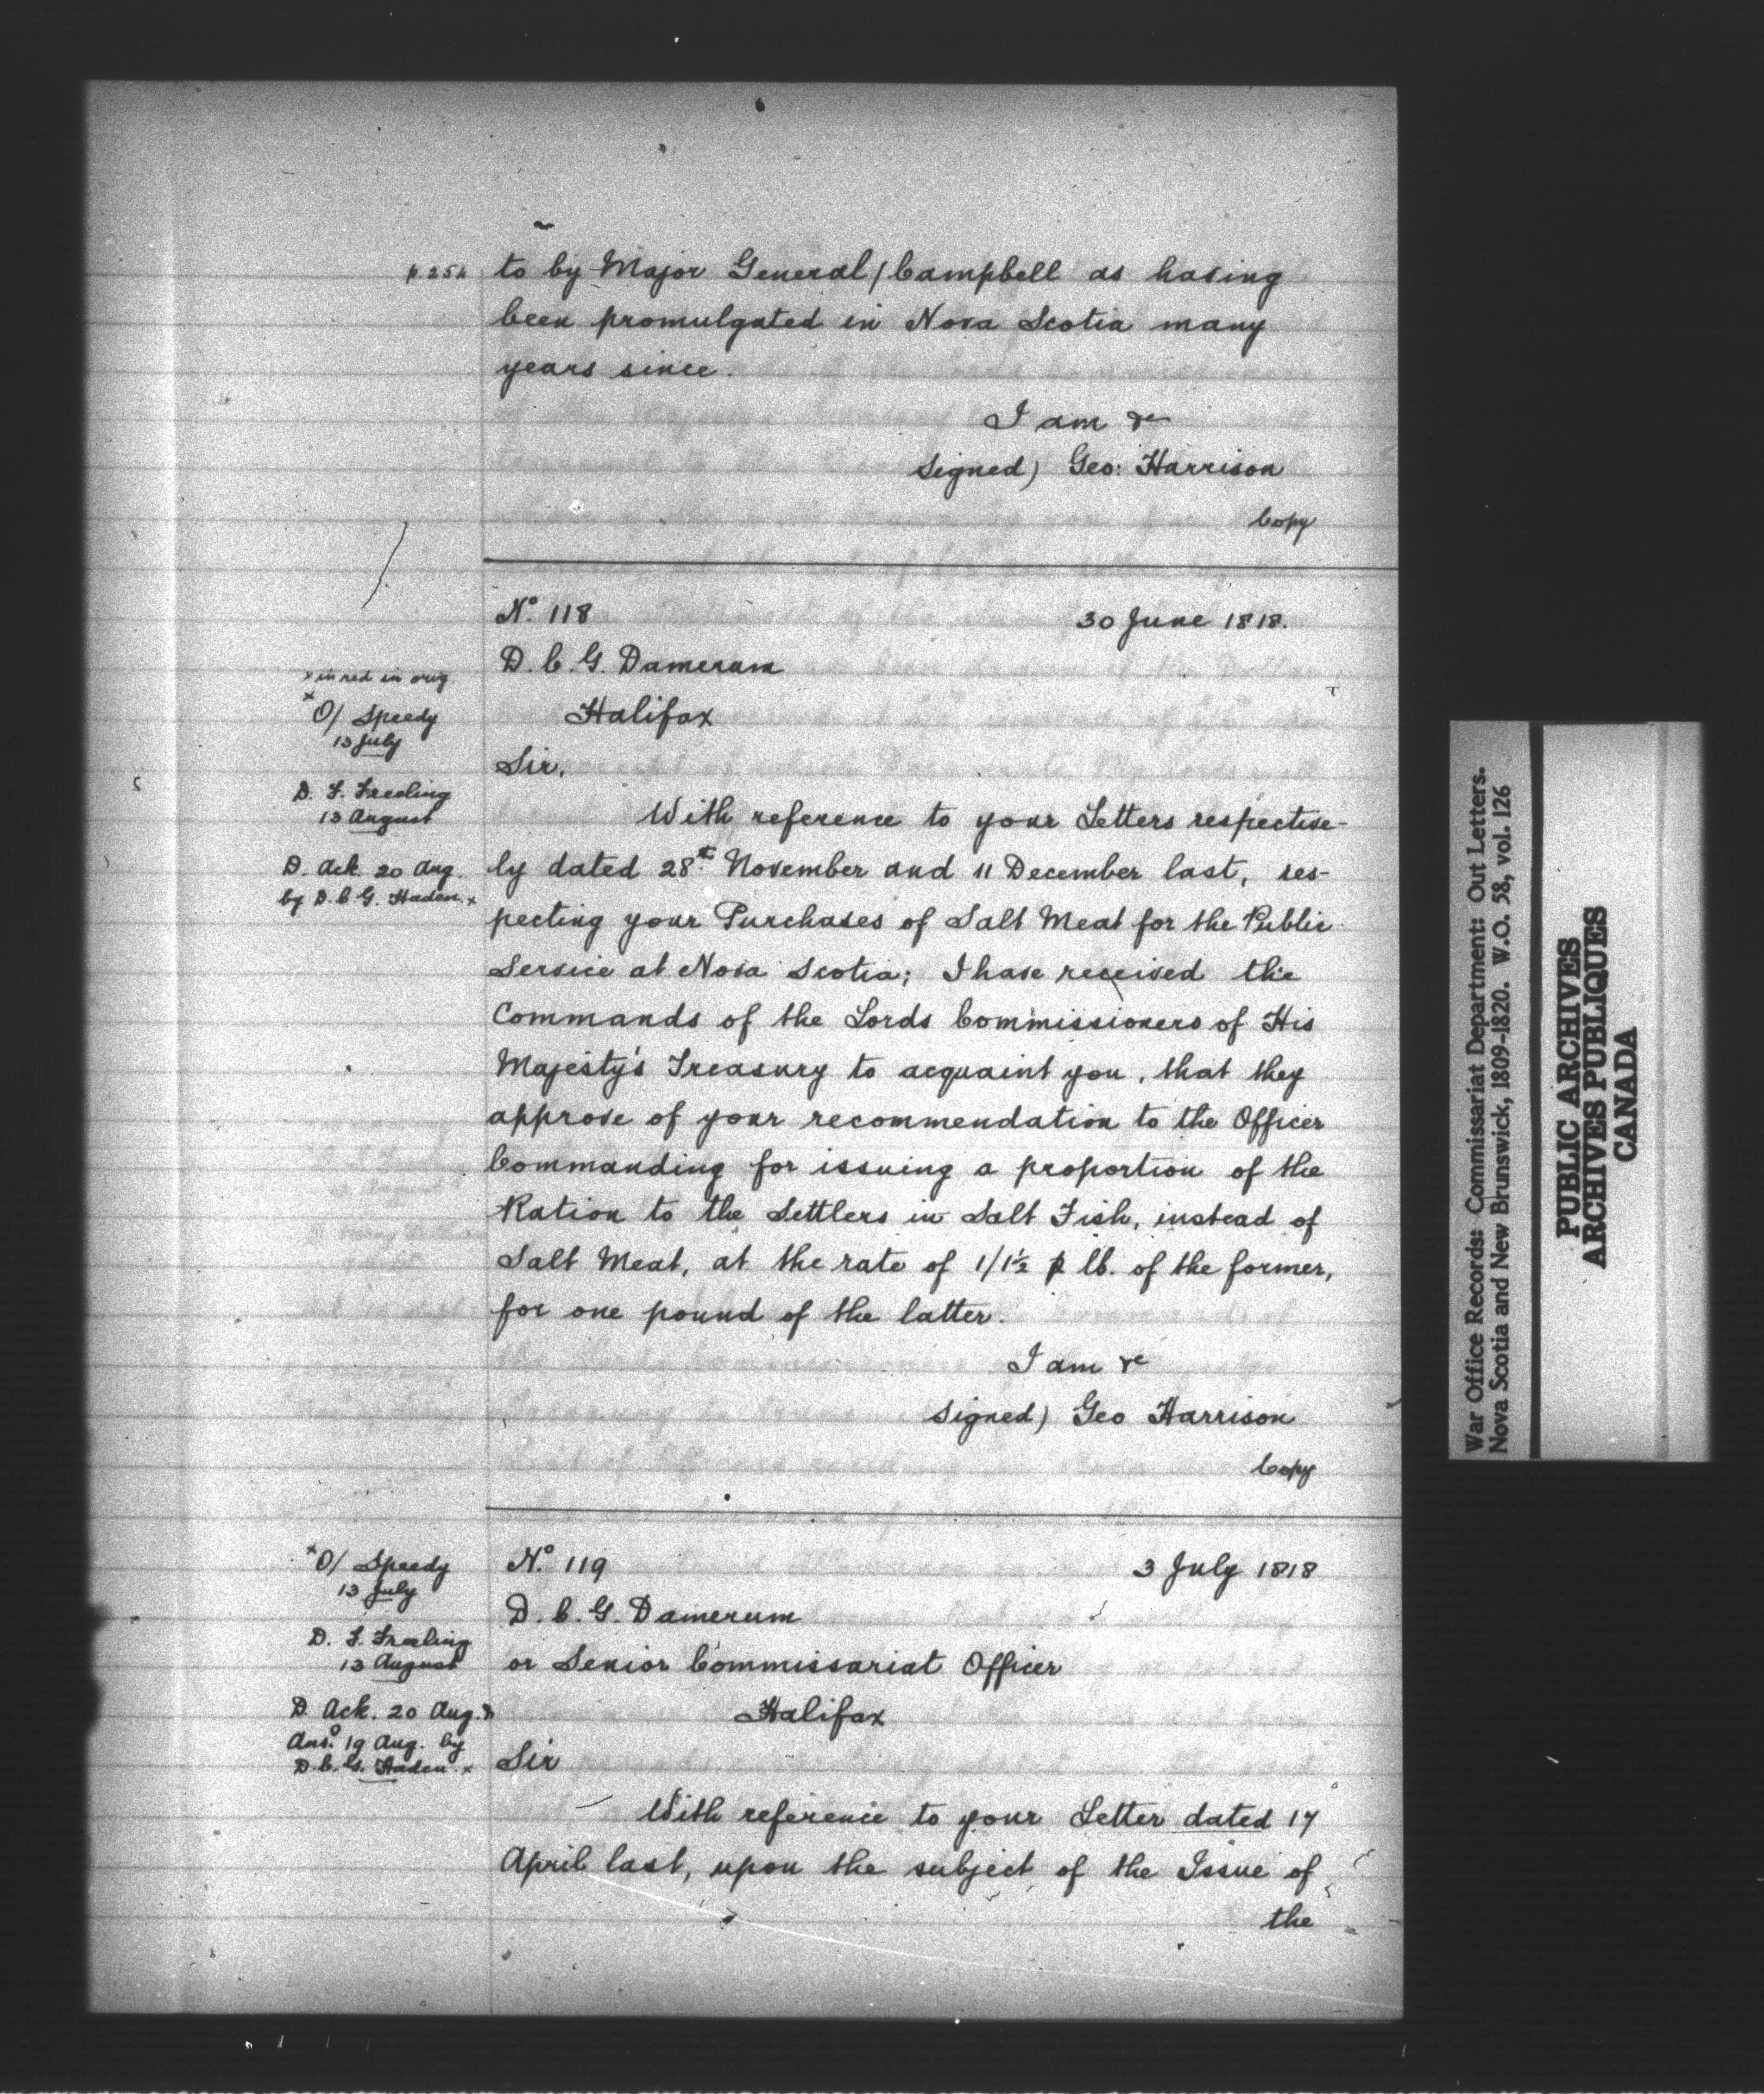 to by Major General / Campbell as having
been promulgated in Nova Scotia many
years since.
I am &c
Signed) Geo: Harrison
Copy
No. 118 30 June 1818.
D. C. G. Damerum
Halifax
x in red in orig.
x O/ Speedy
13 July
D. F. Freeling
13 August
D. Ack. 20 Aug.
by D. C. G. Haden. x
Sir,
With reference to your Letters respective-
ly dated 28th November and 11 December last, res-
pecting your Purchases of Salt Meat for the Public
Service at Nova Scotia; I have received the
Commands of the Lords Commissioners of His
Majesty's Treasury to acquaint you, that they
approve of your recommendation to the Officer
Commanding for issuing a proportion of the
Ration to the Settlers in Salt Fish, instead of
Salt Meat, at the rate of 1/1½ p lb. of the former,
for one pound of the latter.
I am &c
Signed) Geo Harrison
Copy
No. 119 3 July 1818
D. C. G. Damerum
or Senior Commissariat Officer
Halifax
x O/ Speedy
13 July
D. F. Freeling
13 August
D. Ack. 20 Aug. &
Ansd. 19 Aug. by
D. C. G. Haden. x
Sir
With reference to your Letter dated 17
April last, upon the subject of the Issue of
the
War Office Records: Commissariat Department: Out Letters.
Nova Scotia and New Brunswick, 1809-1820. W.O. 58, vol. 126
PUBLIC ARCHIVES
ARCHIVES PUBLIQUES
CANADA